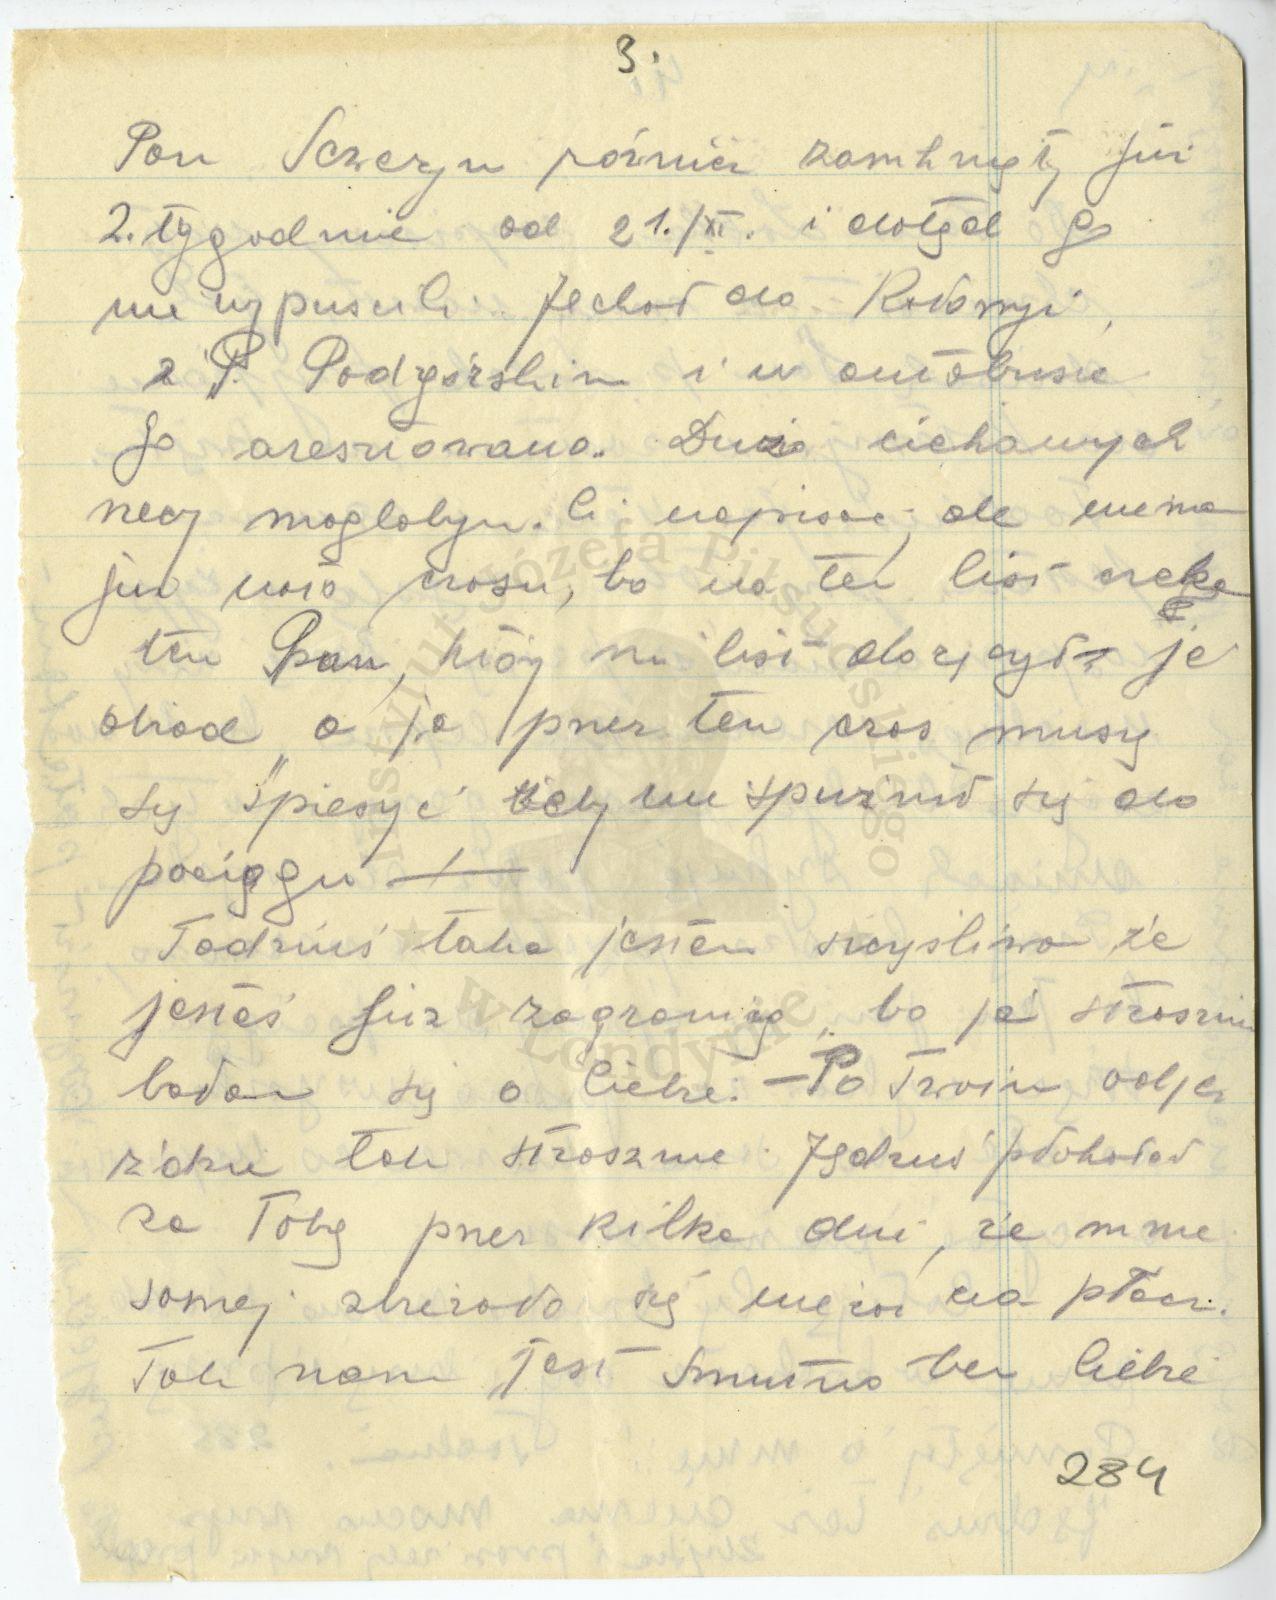 3.
Pan Sczezyn również zamknięty już
2. tygodnie od 21./XI. i dotąd go
nie wypuscili. Jechał do Kołomyi,
z P. Podgórskim i w autobusie
go aresztowano. Dużo ciekawych
rzecy mogłabym. Ci napisac, ale niema
już na to czasu, bo na ten list czeka
ten Pan, który mi list doręczył je
obiad, a ja przez ten czas muszę
się śpiesyć żeby nie spuźnić się do
pociągu —
Tadziuś taka jestem szcyśliwa że
jesteś już zagranicą, bo ja strasznie
bałam się o Ciebie. — Po Twoim odje
ździe tak strasznie Jędruś płokałał
za Tobą przez kilka dni, że mnie
samej zbierało się nieraz na płacz.
Tak nam jest smutno bez Ciebie
284
Instytut Józefa Piłsudskiego
w Londynie